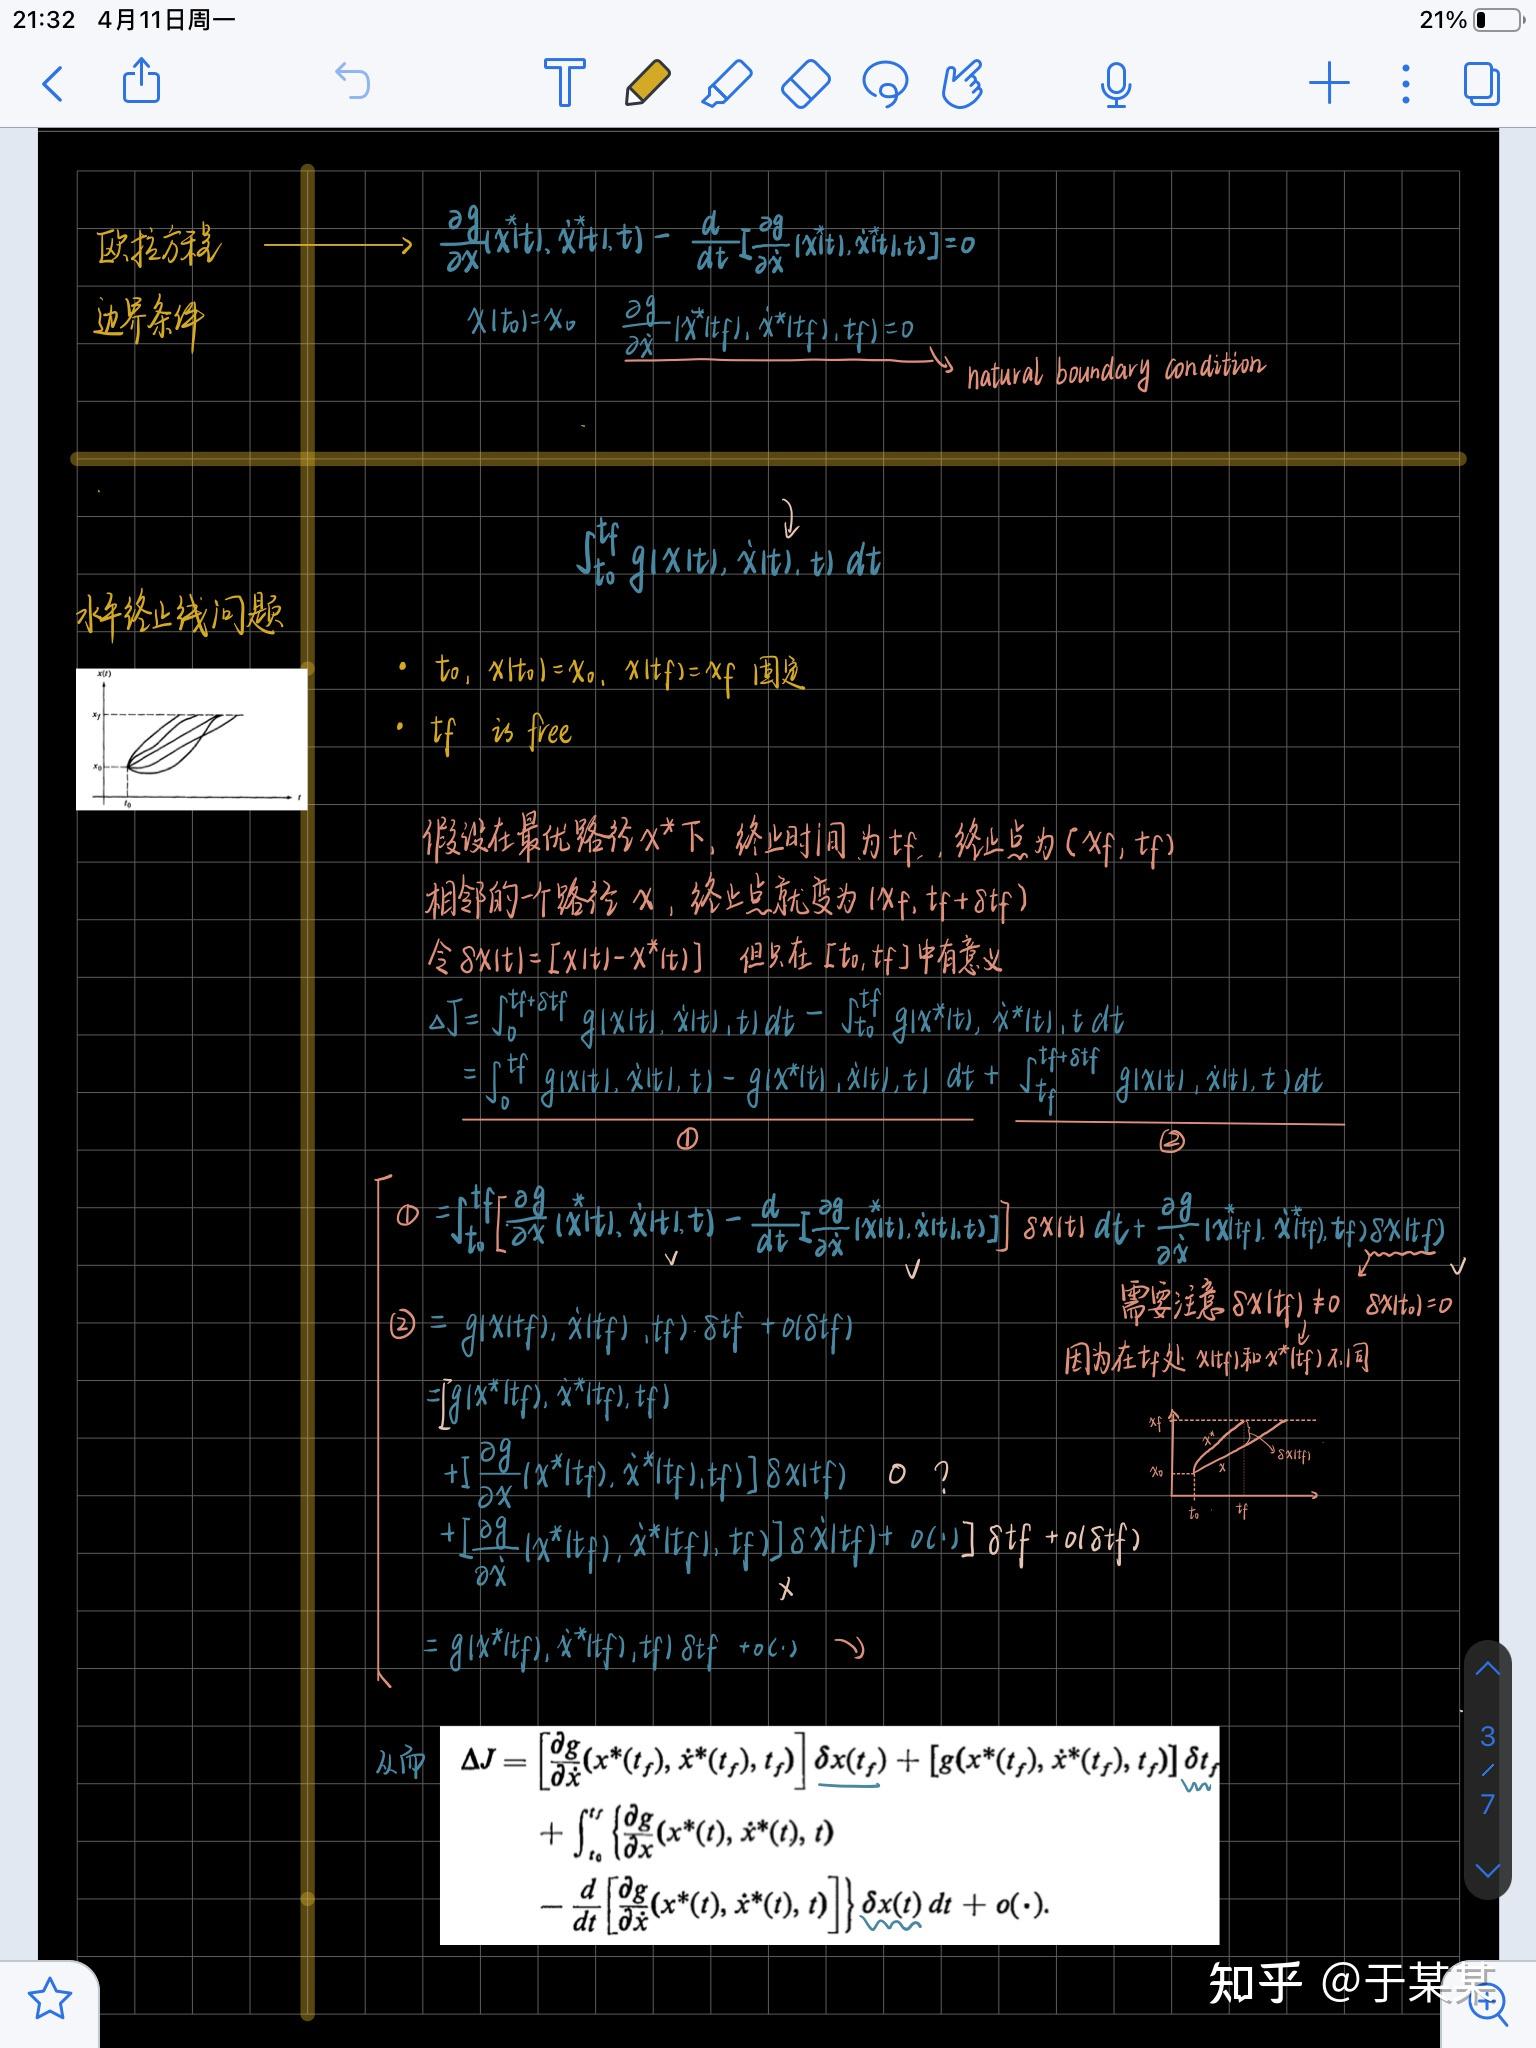 21:32 4月11日周一 21%
欧拉方程 → ∂g/∂x(x*(t), ẋ*(t), t) − d/dt[∂g/∂ẋ(x*(t), ẋ*(t), t)] = 0
边界条件 x(t₀)=x₀ ∂g/∂ẋ(x*(tf), ẋ*(tf), tf)=0
natural boundary condition
∫_{t₀}^{tf} g(x(t), ẋ(t), t) dt
水平终止线问题
x(t)
x_f
x₀
t₀ t
• t₀, x(t₀)=x₀, x(tf)=xf 固定
• tf is free
假设在最优路径 x* 下, 终止时间为 tf, 终止点为 (xf, tf)
相邻的一个路径 x, 终止点就变为 (xf, tf+δtf)
令 δx(t)=[x(t)−x*(t)] 但只在 [t₀, tf] 中有意义
ΔJ = ∫_0^{tf+δtf} g(x(t), ẋ(t), t) dt − ∫_{t₀}^{tf} g(x*(t), ẋ*(t), t dt
= ∫_0^{tf} g(x(t), ẋ(t), t) − g(x*(t), ẋ(t), t) dt + ∫_{tf}^{tf+δtf} g(x(t), ẋ(t), t) dt
① ②
① = ∫_{t₀}^{tf} [∂g/∂x(x*(t), ẋ(t), t) − d/dt[∂g/∂ẋ(x*(t), ẋ(t), t)]] δx(t) dt + ∂g/∂ẋ(x*(tf), ẋ*(tf), tf) δx(tf)
需要注意 δx(tf) ≠ 0 δx(t₀)=0
因为在tf处 x(tf)和x*(tf)不同
② = g(x(tf), ẋ(tf), tf)·δtf + o(δtf)
=[g(x*(tf), ẋ*(tf), tf)
+[∂g/∂x(x*(tf), ẋ*(tf), tf)] δx(tf) 0 ?
+[∂g/∂ẋ(x*(tf), ẋ*(tf), tf)] δẋ(tf) + o(·)] δtf + o(δtf)
x
xf x* δx(tf)
x₀ x
t₀ tf
= g(x*(tf), ẋ*(tf), tf) δtf + o(·)
从而 ΔJ = [∂g/∂ẋ(x*(t_f), ẋ*(t_f), t_f)] δx(t_f) + [g(x*(t_f), ẋ*(t_f), t_f)] δt_f
+ ∫_{t₀}^{t_f} {∂g/∂x(x*(t), ẋ*(t), t)
− d/dt[∂g/∂ẋ(x*(t), ẋ*(t), t)]} δx(t) dt + o(·).
3
/
7
知乎 @于某某